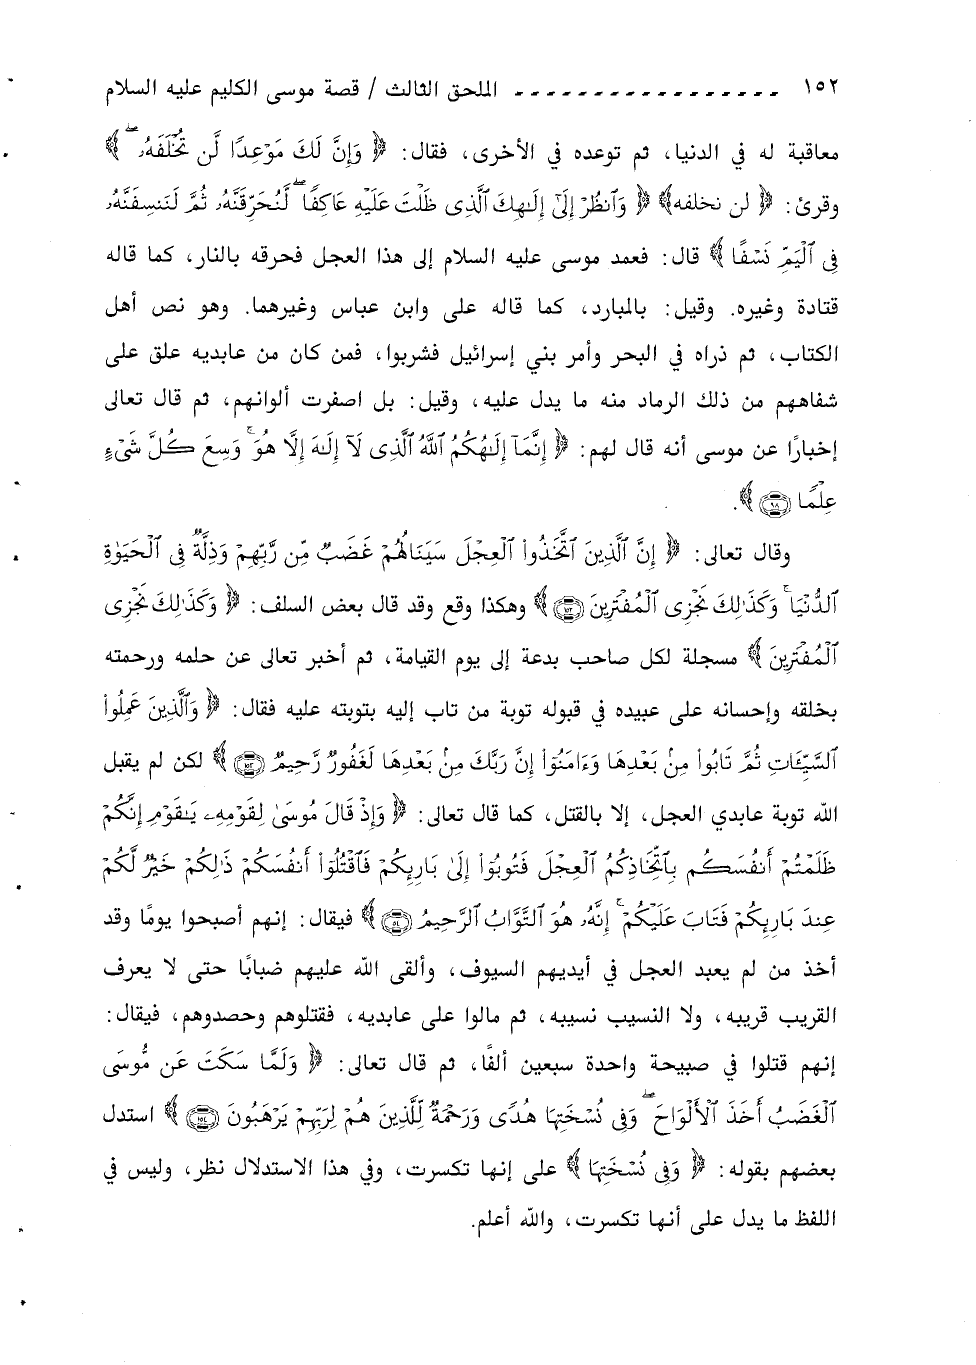 ١٥٢ ---------------- الملحق الثالث / قصة موسى الكليم عليه السلام
معاقبة له في الدنيا، ثم توعده في الأخرى، فقال: ﴿ وَإِنَّ لَكَ مَوْعِدًا لَّن تُخْلَفَهُۥ ۖ ﴾
وقرئ: ﴿ لن نخلفه﴾ ﴿ وَٱنظُرْ إِلَىٰٓ إِلَـٰهِكَ ٱلَّذِى ظَلْتَ عَلَيْهِ عَاكِفًا ۖ لَّنُحَرِّقَنَّهُۥ ثُمَّ لَنَنسِفَنَّهُۥ
فِى ٱلْيَمِّ نَسْفًا ﴾ قال: فعمد موسى عليه السلام إلى هذا العجل فحرقه بالنار، كما قاله
قتادة وغيره. وقيل: بالمبارد، كما قاله على وابن عباس وغيرهما. وهو نص أهل
الكتاب، ثم ذراه في البحر وأمر بني إسرائيل فشربوا، فمن كان من عابديه علق على
شفاههم من ذلك الرماد منه ما يدل عليه، وقيل: بل اصفرت ألوانهم، ثم قال تعالى
إخبارًا عن موسى أنه قال لهم: ﴿ إِنَّمَآ إِلَـٰهُكُمُ ٱللَّهُ ٱلَّذِى لَآ إِلَـٰهَ إِلَّا هُوَ ۚ وَسِعَ كُلَّ شَىْءٍ
عِلْمًا ٩٨ ﴾.
وقال تعالى: ﴿ إِنَّ ٱلَّذِينَ ٱتَّخَذُوا۟ ٱلْعِجْلَ سَيَنَالُهُمْ غَضَبٌ مِّن رَّبِّهِمْ وَذِلَّةٌ فِى ٱلْحَيَوٰةِ
ٱلدُّنْيَا ۚ وَكَذَٰلِكَ نَجْزِى ٱلْمُفْتَرِينَ ١٥٢ ﴾ وهكذا وقع وقد قال بعض السلف: ﴿ وَكَذَٰلِكَ نَجْزِى
ٱلْمُفْتَرِينَ ﴾ مسجلة لكل صاحب بدعة إلى يوم القيامة، ثم أخبر تعالى عن حلمه ورحمته
بخلقه وإحسانه على عبيده في قبوله توبة من تاب إليه بتوبته عليه فقال: ﴿ وَٱلَّذِينَ عَمِلُوا۟
ٱلسَّيِّـَٔاتِ ثُمَّ تَابُوا۟ مِنۢ بَعْدِهَا وَءَامَنُوٓا۟ إِنَّ رَبَّكَ مِنۢ بَعْدِهَا لَغَفُورٌ رَّحِيمٌ ١٥٣ ﴾ لكن لم يقبل
الله توبة عابدي العجل، إلا بالقتل، كما قال تعالى: ﴿ وَإِذْ قَالَ مُوسَىٰ لِقَوْمِهِۦ يَـٰقَوْمِ إِنَّكُمْ
ظَلَمْتُمْ أَنفُسَكُم بِٱتِّخَاذِكُمُ ٱلْعِجْلَ فَتُوبُوٓا۟ إِلَىٰ بَارِئِكُمْ فَٱقْتُلُوٓا۟ أَنفُسَكُمْ ذَٰلِكُمْ خَيْرٌ لَّكُمْ
عِندَ بَارِئِكُمْ فَتَابَ عَلَيْكُمْ ۚ إِنَّهُۥ هُوَ ٱلتَّوَّابُ ٱلرَّحِيمُ ٥٤ ﴾ فيقال: إنهم أصبحوا يومًا وقد
أخذ من لم يعبد العجل في أيديهم السيوف، وألقى الله عليهم ضبابًا حتى لا يعرف
القريب قريبه، ولا النسيب نسيبه، ثم مالوا على عابديه، فقتلوهم وحصدوهم، فيقال:
إنهم قتلوا في صبيحة واحدة سبعين ألفًا، ثم قال تعالى: ﴿ وَلَمَّا سَكَتَ عَن مُّوسَى
ٱلْغَضَبُ أَخَذَ ٱلْأَلْوَاحَ ۖ وَفِى نُسْخَتِهَا هُدًى وَرَحْمَةٌ لِّلَّذِينَ هُمْ لِرَبِّهِمْ يَرْهَبُونَ ١٥٤ ﴾ استدل
بعضهم بقوله: ﴿ وَفِى نُسْخَتِهَا ﴾ على إنها تكسرت، وفي هذا الاستدلال نظر، وليس في
اللفظ ما يدل على أنها تكسرت، والله أعلم.